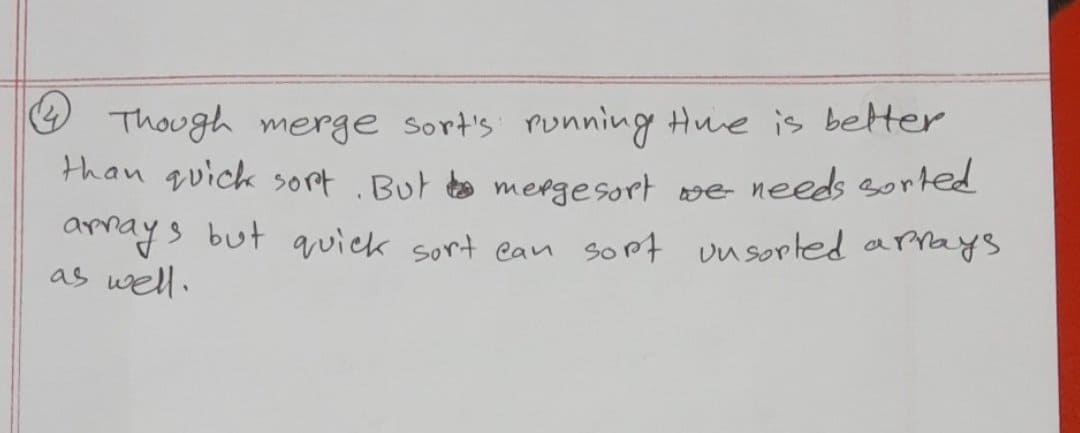 ④ Though merge sort's running time is better
than quick sort. But mergesort needs sorted
arrays but quick sort can sort unsorted arrays
as well.